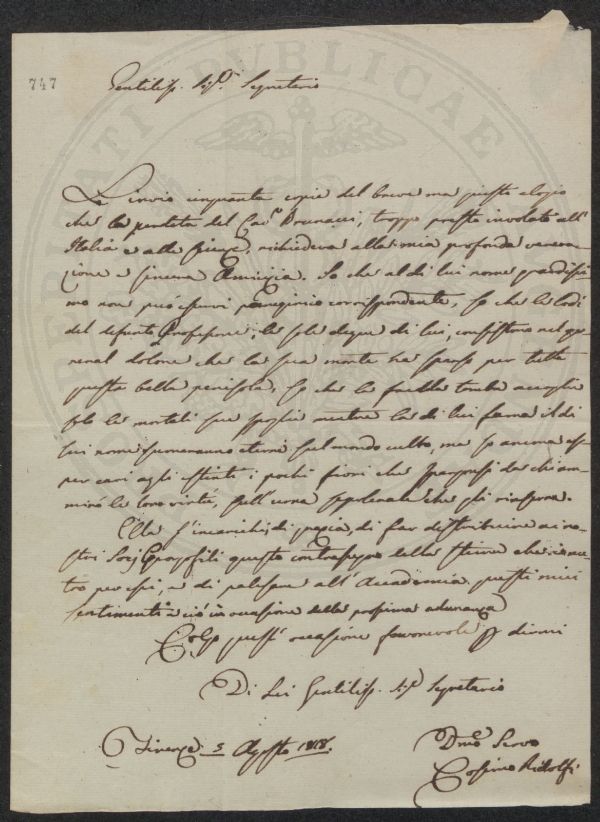 747
Gentiliss. Sig.r Segretario
Le invio cinquanta copie del breve ma giusto elogio
che la perdita del Cav.e Brunacci, troppo presto involato all'
Italia e alle scienze, richiedeva alla mia profonda venera-
zione e sincera Amicizia. So che al di lui nome grandissi
mo non può esservi panegirico corrispondente, so che le lodi
del defunto Professore, le sole degne di lui, consistono nel ge-
neral dolore che la sua morte ha sparso per tutta
questa bella penisola, so che la fredda tomba accoglie
solo le mortali sue spoglie mentre la di lui fama il di
lui nome rimarranno eterni sul mondo culto, ma so ancora es-
ser cari agli estinti i pochi fiori che sparsi da chi am-
mirò le loro virtù, sull'urna sepolcrale che gli rinserra.
Ella s'incarichi, di grazia, di far distribuire ai no-
stri Socj Georgofili questo contrassegno della stima che io nu-
tro per essi, e di palesare all'Accademia questi miei
sentimenti e ciò in occasione della prossima adunanza
Colgo quest'occasione favorevole p dirmi
Di Lei Gentiliss. Sig.r Segretario
Firenze 5 Agosto 1818.
Dmo Servo
Cosimo Ridolfi